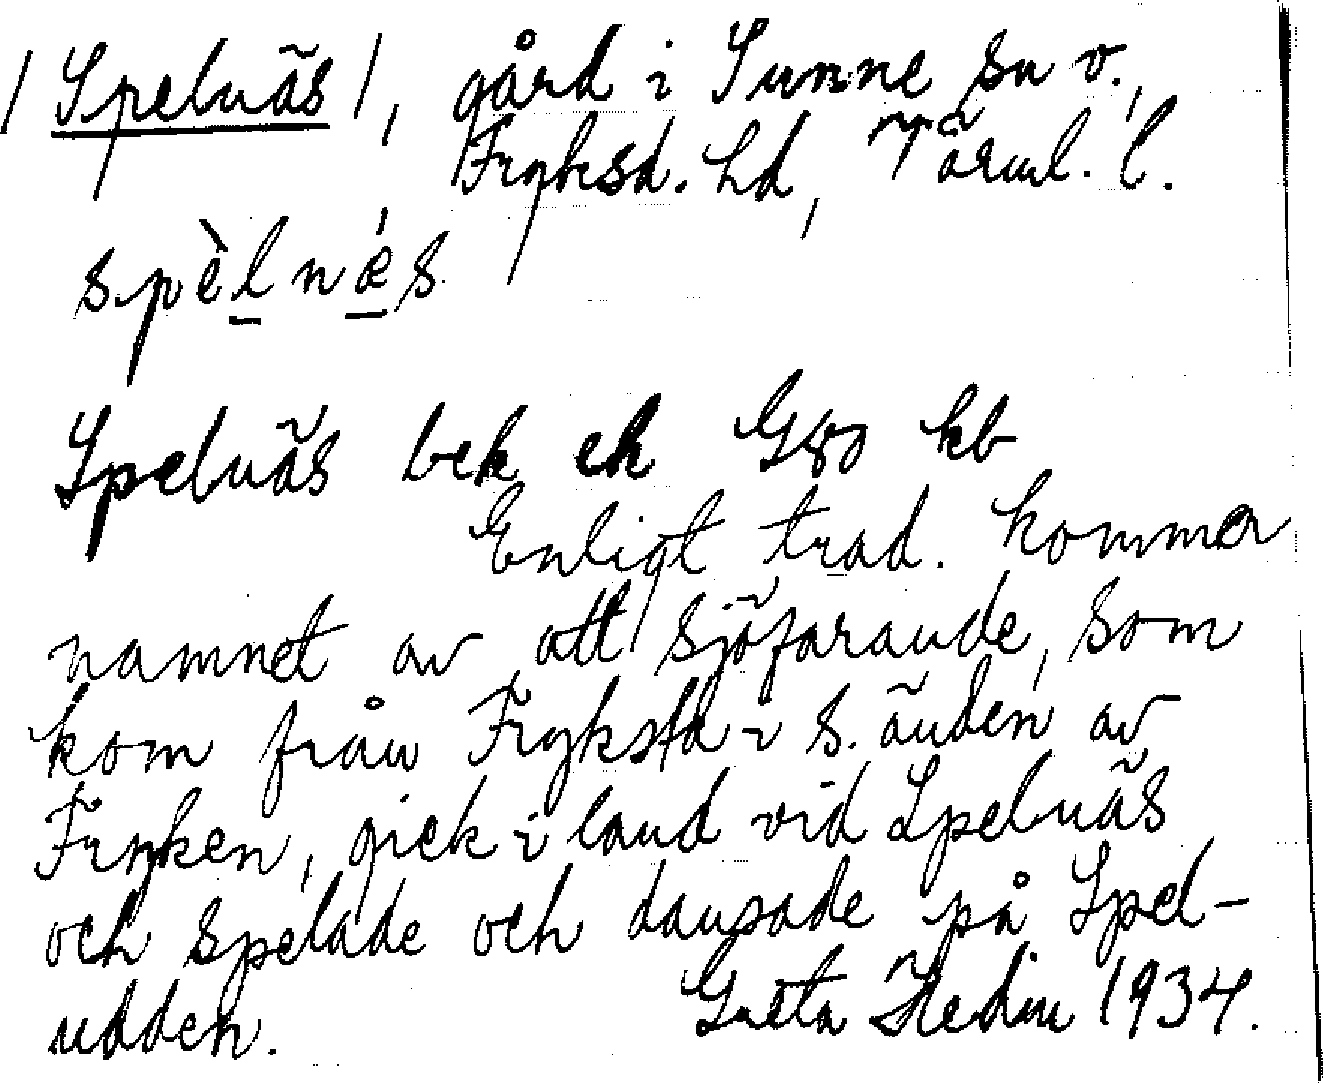 /Spelnäs/, gård i Sunne sn v.,
Fryksd. hd, Värml. l.
spèlnǽs
Spelnäs bek ek G80 kb
Enligt trad. kommer
namnet av att sjöfarande, som
kom från Frykstad i s. änden av
Fryken, gick i land vid Spelnäs
och spelade och dansade på Spel-
udden. Greta Hedin 1934.